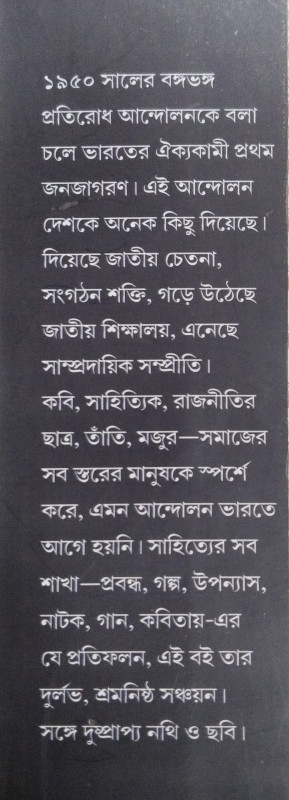 ১৯৫০ সালের বঙ্গভঙ্গ
প্রতিরোধ আন্দোলনকে বলা
চলে ভারতের ঐক্যকামী প্রথম
জনজাগরণ। এই আন্দোলন
দেশকে অনেক কিছু দিয়েছে।
দিয়েছে জাতীয় চেতনা,
সংগঠন শক্তি, গড়ে উঠেছে
জাতীয় শিক্ষালয়, এনেছে
সাম্প্রদায়িক সম্প্রীতি।
কবি, সাহিত্যিক, রাজনীতির
ছাত্র, তাঁতি, মজুর—সমাজের
সব স্তরের মানুষকে স্পর্শে
করে, এমন আন্দোলন ভারতে
আগে হয়নি। সাহিত্যের সব
শাখা—প্রবন্ধ, গল্প, উপন্যাস,
নাটক, গান, কবিতায়-এর
যে প্রতিফলন, এই বই তার
দুর্লভ, শ্রমনিষ্ঠ সঞ্চয়ন।
সঙ্গে দুষ্প্রাপ্য নথি ও ছবি।